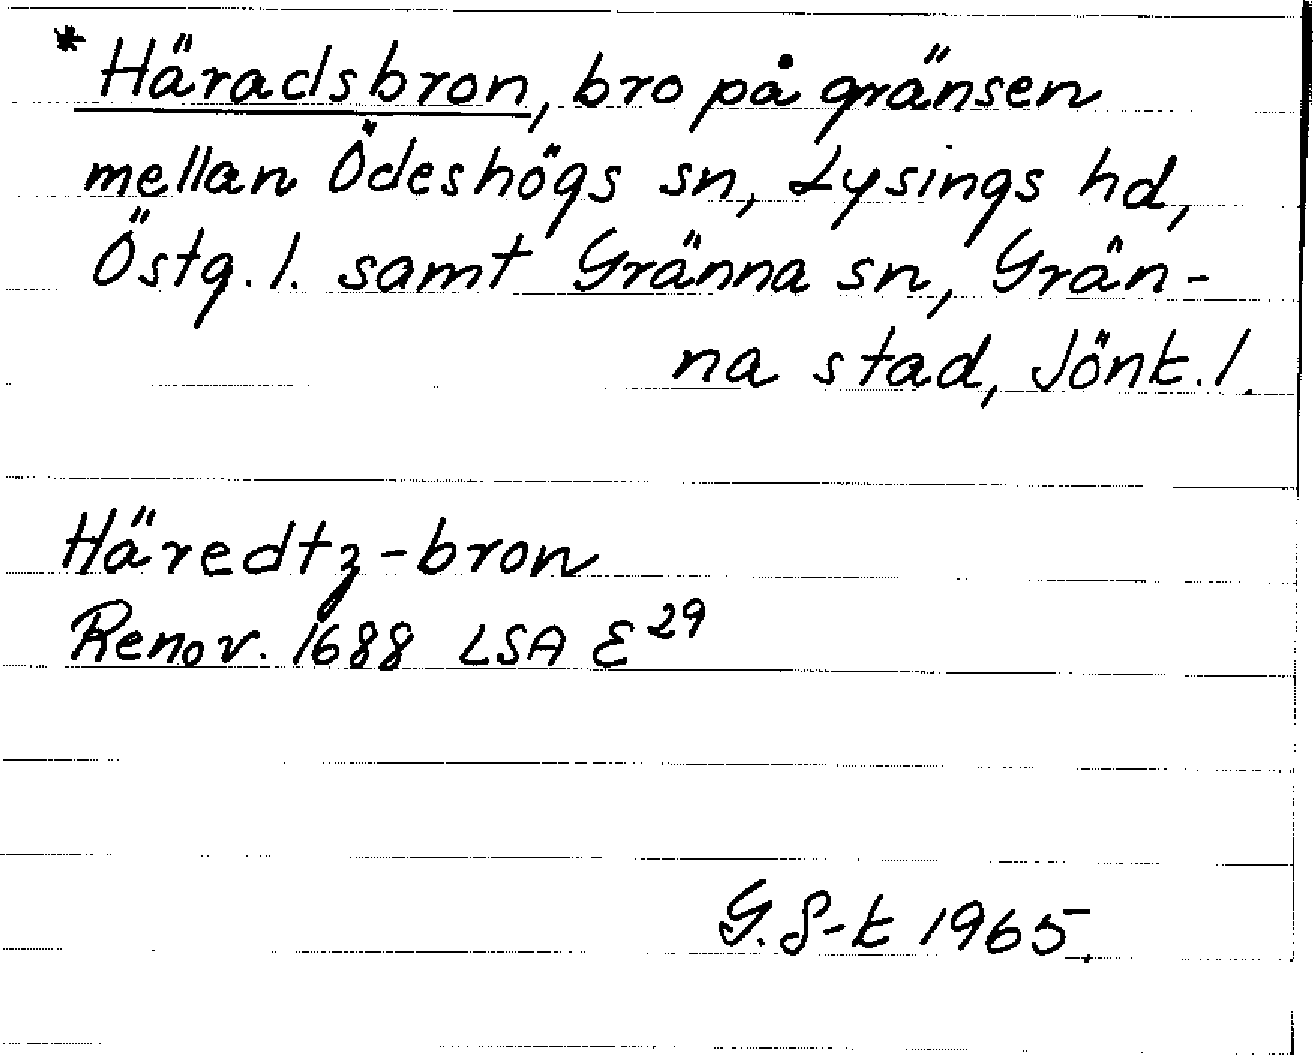 * Häradsbron, bro på gränsen
mellan Ödeshögs sn, Lysings hd,
Östg. l. samt Gränna sn, Grän-
na stad, Jönk. l.
Häredtz-bron
Renov. 1688 LSA E 29
G. S-k 1965.